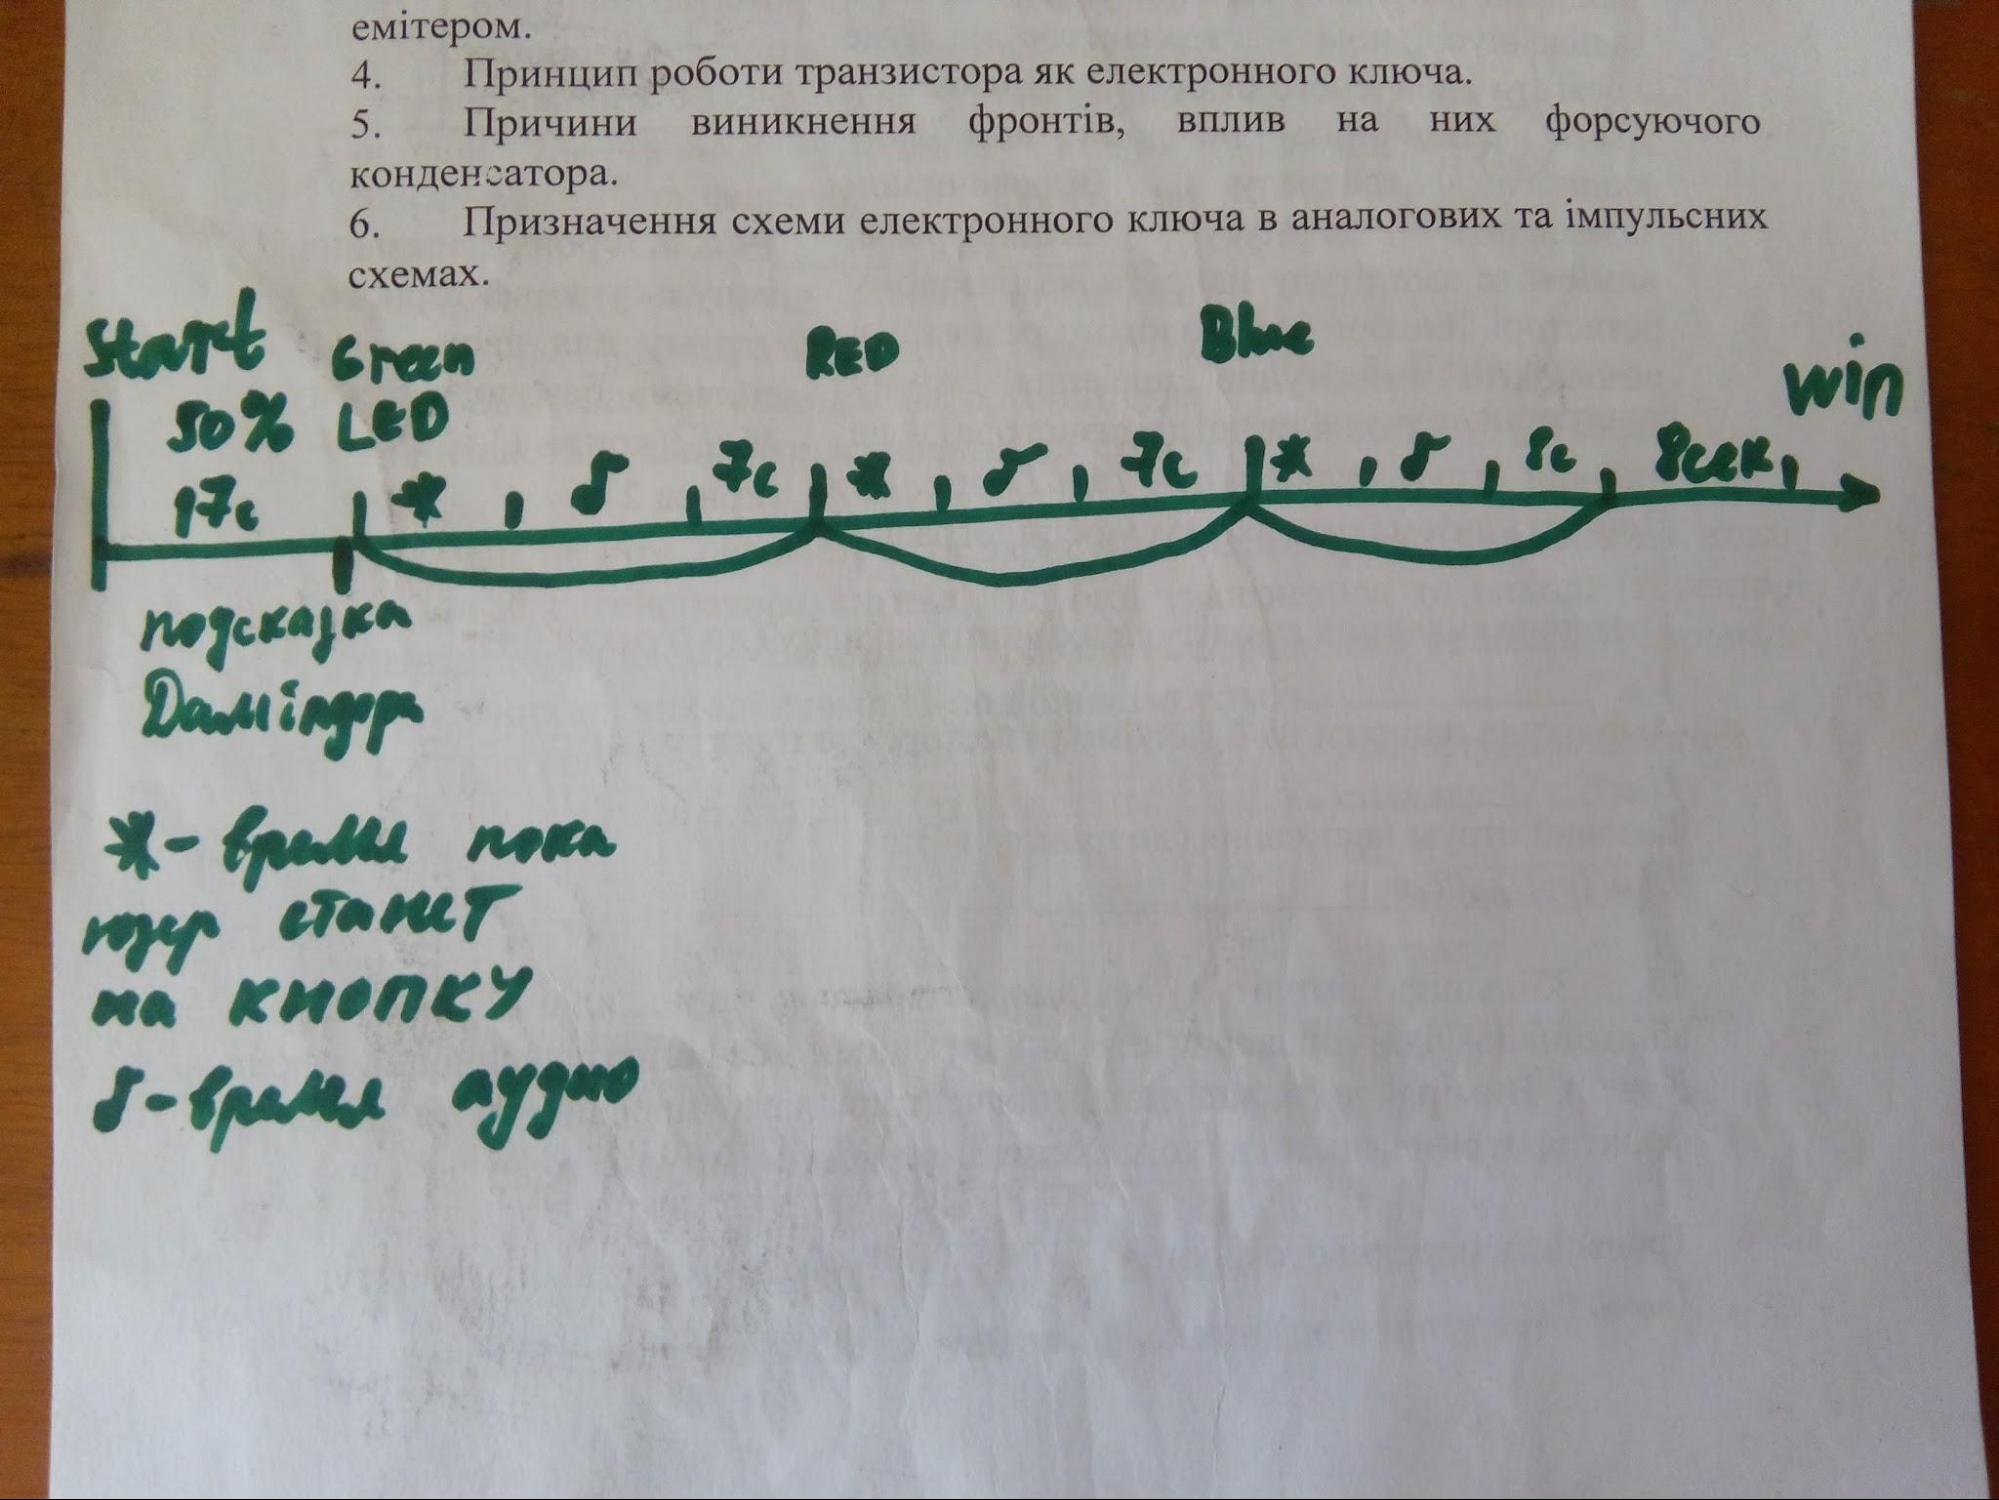 емітером.
4. Принцип роботи транзистора як електронного ключа.
5. Причини виникнення фронтів, вплив на них форсуючого
конденсатора.
6. Призначення схеми електронного ключа в аналогових та імпульсних
схемах.
Start Green RED Blue win
50% LED
17с * δ 7с * δ 7с * δ 8с 8сек
подсказка
*- время пока
юзер станет
на кнопку
δ-время аудио